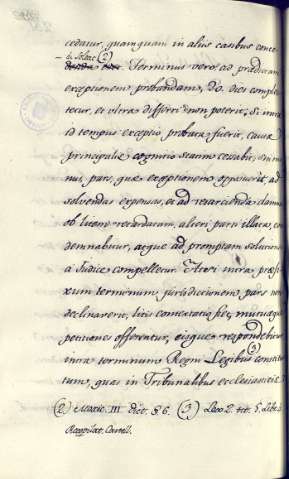 cedatur, quamquam in aliis casibus conce-
di soleat (2) Terminus vero ad prædictam
exceptionem probandam, 20. dies complec-
tetur, et ultra differri non poterit; Si intra
id tempus exceptio probata fuerit, causæ
principalis cognitio statim cessabit, sin mi-
nus, pars, quæ exceptionem opposuerit ad
solvendas expensas, et ad resarcienda damna
ob litem retardatam, alteri parti illata, con-
demnabitur, atque ad promptam solutionem
à Judice compelletur. At si intra præfi-
xum terminum jurisdictionem pars non
declinaverit, litis contestatio fiet, mutuæque
petitiones offerentur, eisque respondebitur
intra terminum Regni Legibus constitu-
tum, (3) quas in Tribunalibus ecclesiasticis
(2) Mexic. III dict. § 6. (3) Lex 2. tit. 5. Lib. 4.
Recopilat. Castell.